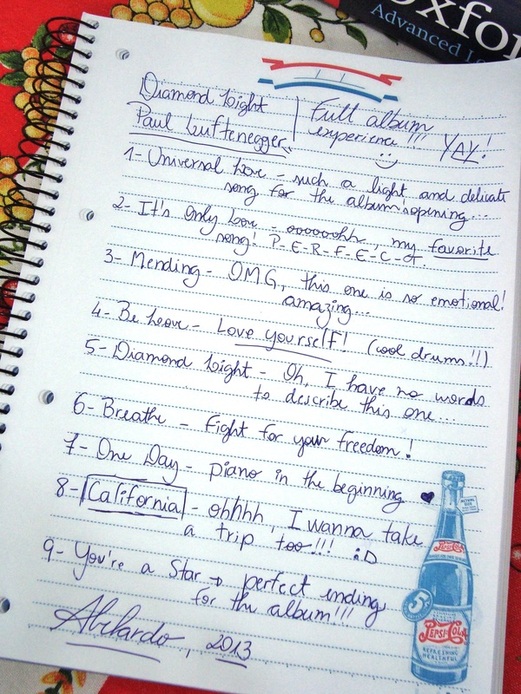 Oxfo
Advanced Le
Diamond Light
Paul Luftenegger
Full album
experience!!! YAY!
:)
1- Universal Love - such a light and delicate
song for the album's opening...
2- It's Only Love - ooooohhh, my favorite
song! P-E-R-F-E-C-T.
3- Mending - OMG, this one is so emotional!
amazing...
4- Be Love - Love yourself! (cool drums!!)
5- Diamond Light - Oh, I have no words
to describe this one...
6- Breathe - Fight for your freedom!
7- One Day - piano in the beginning ♥
8- California - ohhhh, I wanna take
a trip too!!! :D
9- You're a Star → perfect ending
for the album!!!
Abelardo, 2013
PEPSI-COLA
5¢
PEPSI-COLA
REFRESHING
HEALTHFUL